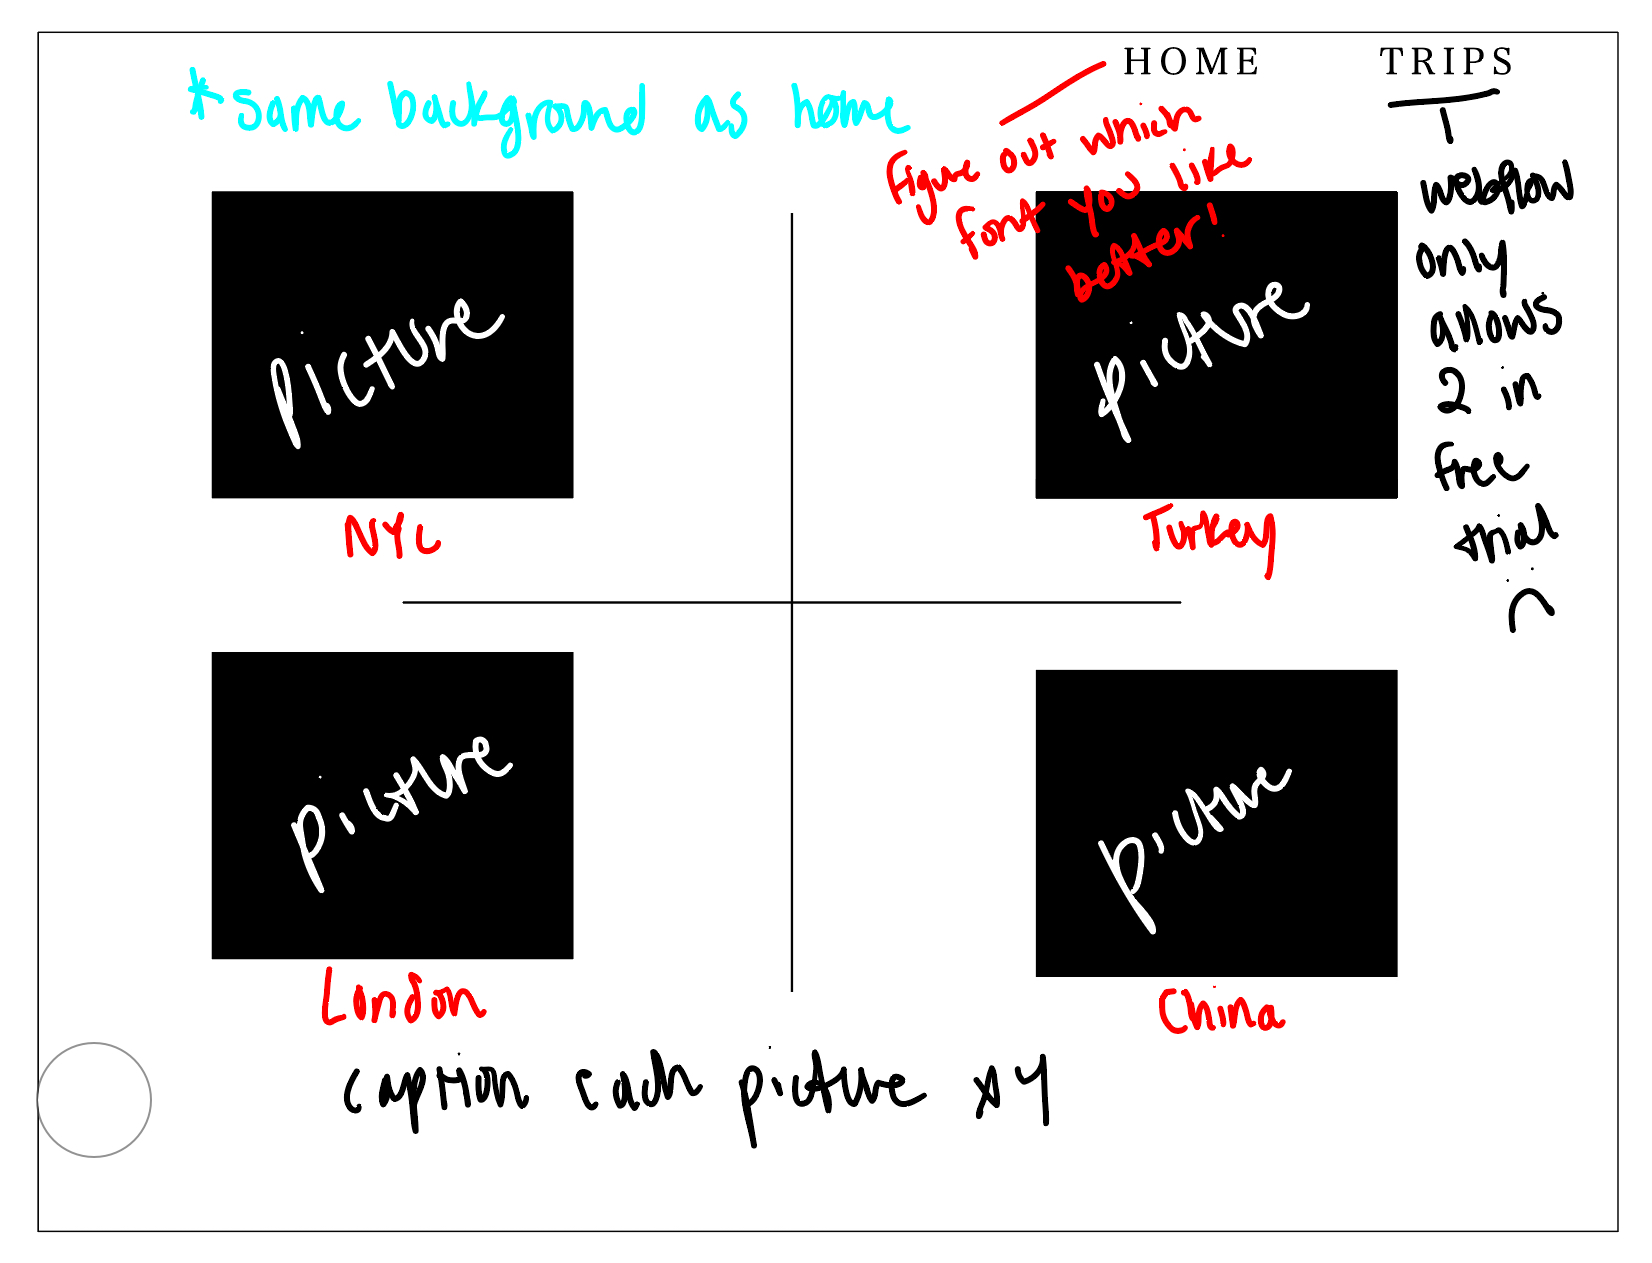 HOME TRIPS
*same background as home
Figure out which
font you like
better!
webflow
only
allows
2 in
free
trial
picture
picture
NYC
Turkey
picture
picture
London
China
caption each picture x4